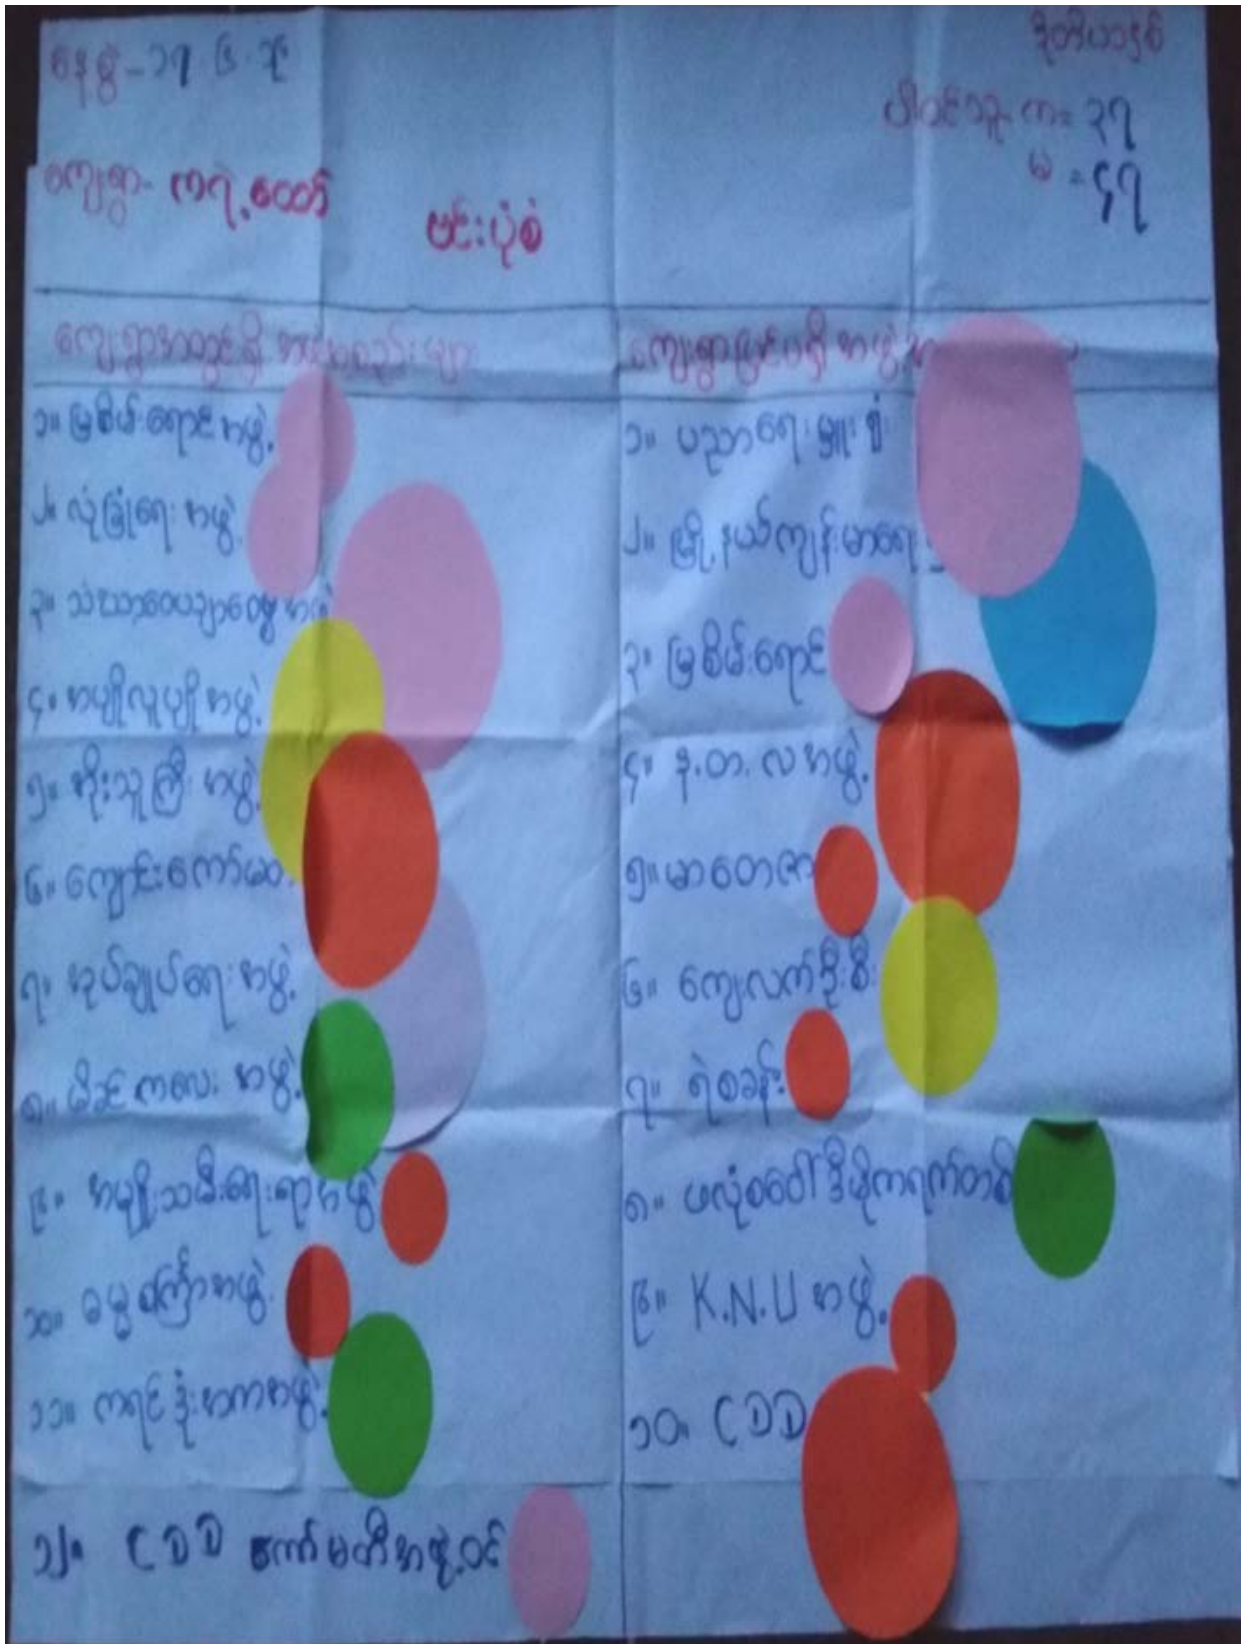 နေ့စွဲ-၁၅ ၆ ၁၆
ဒုတိယနှစ်
ပါဝင်သူ-ကျ= ၃၇
မ = ၄၇
ကျေးရွာ-
ဗင်းပုံစံ
ကျေးရွာအတွင်းရှိ အဖွဲ့အစည်းများ
ကျေးရွာပြင်ပရှိ အဖွဲ့
၁။ မြစိမ်းရောင် အဖွဲ့
၂။ လုံခြုံရေး အဖွဲ့
၃။ သံဃာ့ဝေယျာဝစ္စ
၄။ အပျိုလူပျိုအဖွဲ့
၅။ အိုးသူကြီး အဖွဲ့
၆။ ကျောင်းကော်မတ
၇။ အုပ်ချုပ်ရေး အဖွဲ့
၈။ မိခင်ကလေး အဖွဲ့
၉။ အမျိုးသမီးရေးရာအဖွဲ့
၁၀။ ဓမ္မစကြာအဖွဲ့
၁၁။ ကရင်ဒုံးအကအဖွဲ့
၁၂။ CDD ကော်မတီအဖွဲ့ဝင်
၁။ ပညာရေးမှူးရုံး
၂။ မြို့နယ်ကျန်းမာရေး
၃။ မြစိမ်းရောင်
၄။ န.တ.လ အဖွဲ့
၅။ မာတေဇာ
၆။ ကျေးလက်ဦးစီး
၇။ ရဲစခန်း
၈။ ဖလုံစဝေါ်ဒီမိုကရက်တစ်
၉။ K.N.U အဖွဲ့
၁၀။ CDD